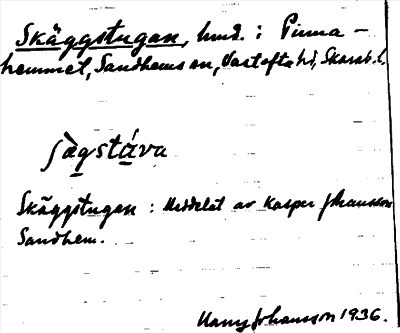 Skäggstugan, hmd. i Pinna-
hemmet, Sandhems sn, Vartofta hd, Skarab. l.
sàgstáva
Skäggstugan : Meddelat av Kasper Johansson
Sandhem.
Harry Johansson 1936.